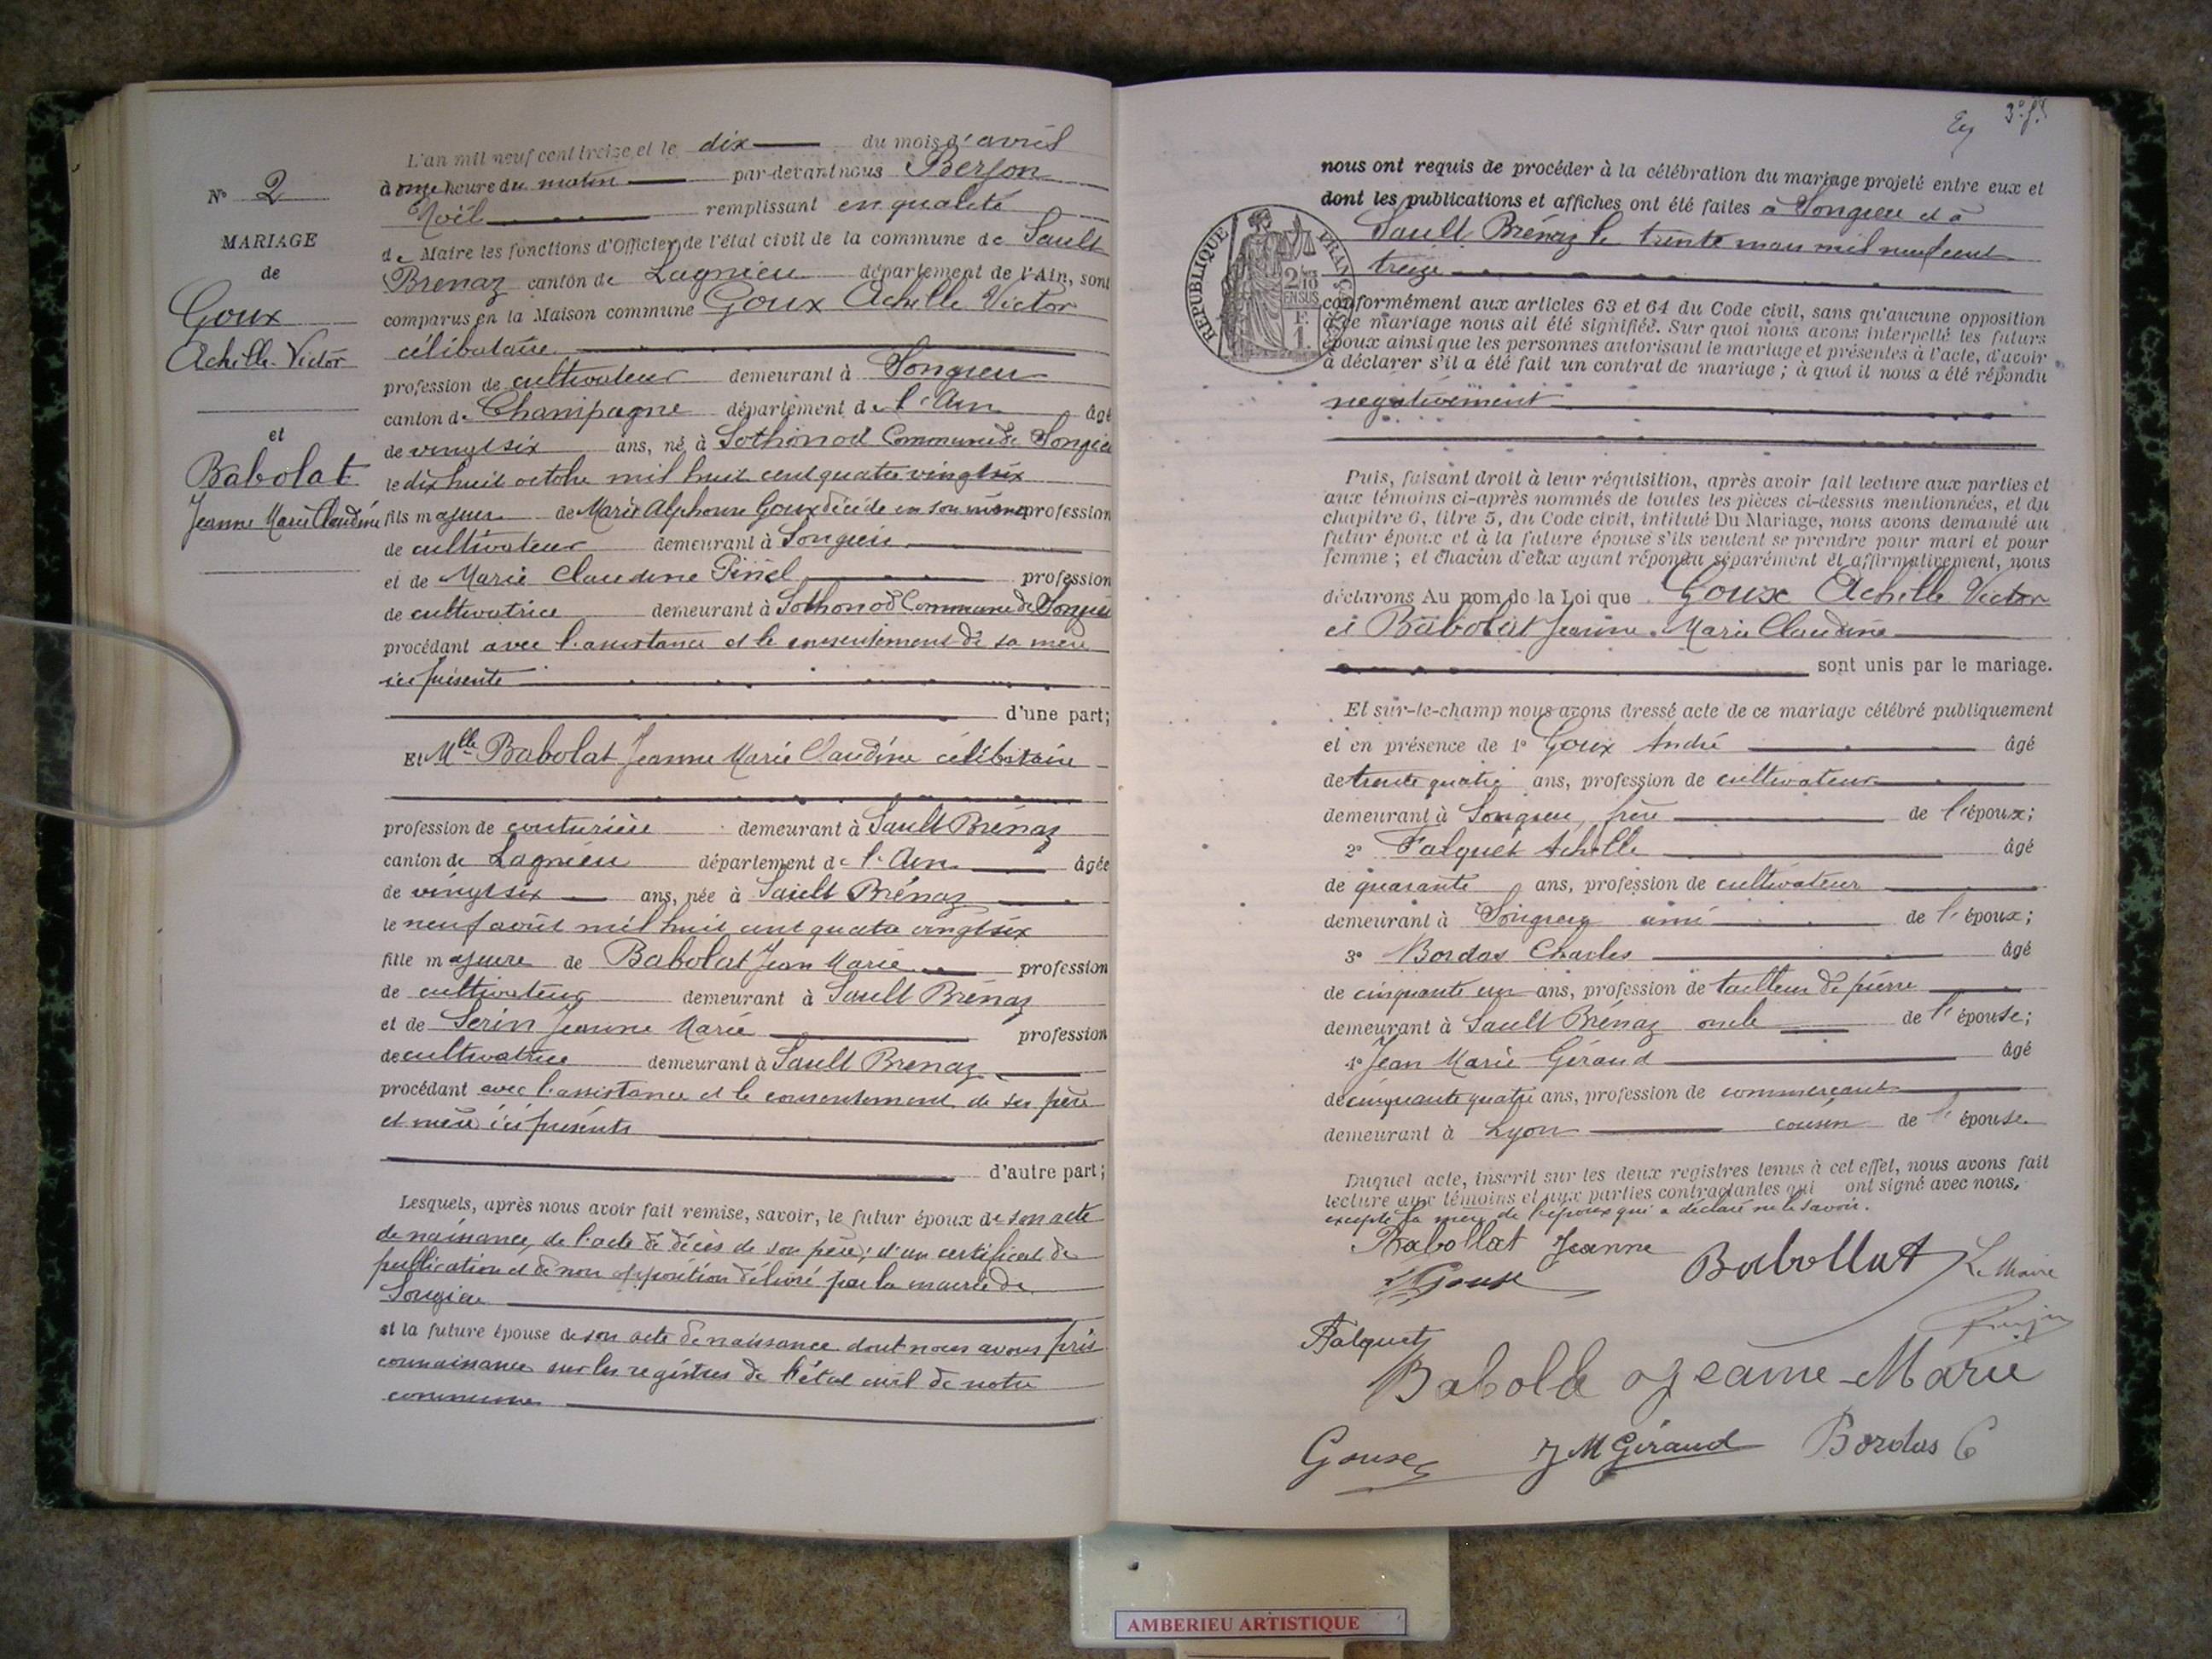 N° 2
MARIAGE
de
Goux
Achille Victor
et
Babolat
Jeanne Marie Claudine
L'an mil neuf cent treize, et le dix du mois d'avril
à onze heure du matin par-devant nous
Noël remplissant en qualité
de Maire les fonctions d'Officier de l'état civil de la commune de Sault
Brenaz canton de Lagnieu département de l'Ain, sont
comparus en la Maison commune Goux Achille Victor
célibataire
profession de cultivateur demeurant à Songieu
canton de Champagne département de l'Ain âgé
de vingt six ans, né à Sothonod Commune de Songieu
le dix huit octobre mil huit cent quatre vingt six
fils majeur de Marie Alphonse Goux décédé en son vivant profession
de cultivateur demeurant à Songieu
et de Marie Claudine Pinel profession
de cultivatrice demeurant à Sothonod Commune de Songieu
procédant avec l'assistance et le consentement de sa mère
ici présente
d'une part;
Et Mlle Babolat Jeanne Marie Claudine célibataire
profession de couturière demeurant à Sault Brénaz
canton de Lagnieu département de l'Ain âgée
de vingt six ans, née à Sault Brénaz
le neuf août mil huit cent quatre vingt six
fille majeure de Babolat Jean Marie profession
de cultivateur demeurant à Sault Brénaz
et de Serin Jeanne Marie profession
de cultivatrice demeurant à Sault Brenaz
procédant avec l'assistance et le consentement de ses père
et mère ici présents
d'autre part;
Lesquels, après nous avoir fait remise, savoir, le futur époux de son acte
de naissance, de l'acte de décès de son père; d'un certificat de
publication et de non opposition délivré par la mairie de
Songieu
et la future épouse de son acte de naissance dont nous avons pris
connaissance sur les registres de l'état civil de notre
commune
3e f.
nous ont requis de procéder à la célébration du mariage projeté entre eux et
dont les publications et affiches ont été faites à Songieu et à
Sault Brénaz le trente mars mil neuf cent
treize
REPUBLIQUE FRANÇAISE
2/10 EN SUS
F. 1.
conformément aux articles 63 et 64 du Code civil, sans qu'aucune opposition
à ce mariage nous ait été signifiée. Sur quoi nous avons interpellé les futurs
époux ainsi que les personnes autorisant le mariage et présentes à l'acte, d'avoir
à déclarer s'il a été fait un contrat de mariage; à quoi il nous a été répondu
négativement
Puis, faisant droit à leur réquisition, après avoir fait lecture aux parties et
aux témoins ci-après nommés de toutes les pièces ci-dessus mentionnées, et du
chapitre 6, titre 5, du Code civil, intitulé Du Mariage, nous avons demandé au
futur époux et à la future épouse s'ils veulent se prendre pour mari et pour
femme; et chacun d'eux ayant répondu séparément et affirmativement, nous
déclarons Au nom de la Loi que Goux Achille Victor
et Babolat Jeanne Marie Claudine
sont unis par le mariage.
Et sur-le-champ nous avons dressé acte de ce mariage célébré publiquement
et en présence de 1° Goux André âgé
de trente quatre ans, profession de cultivateur
demeurant à Songieu frère de l'époux;
2° Falquet Achille âgé
de quarante ans, profession de cultivateur
demeurant à Songieu ami de l'époux;
3° Bordas Charles âgé
de cinquante un ans, profession de tailleur de pierre
demeurant à Sault Brénaz oncle de l'épouse;
4° Jean Marie Géraud âgé
de cinquante quatre ans, profession de commerçant
demeurant à Lyon cousin de l'épouse
Duquel acte, inscrit sur les deux registres tenus à cet effet, nous avons fait
lecture aux témoins et aux parties contractantes qui ont signé avec nous,
excepté la mère de l'époux qui a déclaré ne le savoir.
Babollat Jeanne
Babollat
Le Maire
Goux
Falquet
Babola Jeanne-Marie
Goux
J M Géraud
Bordas C
AMBERIEU ARTISTIQUE